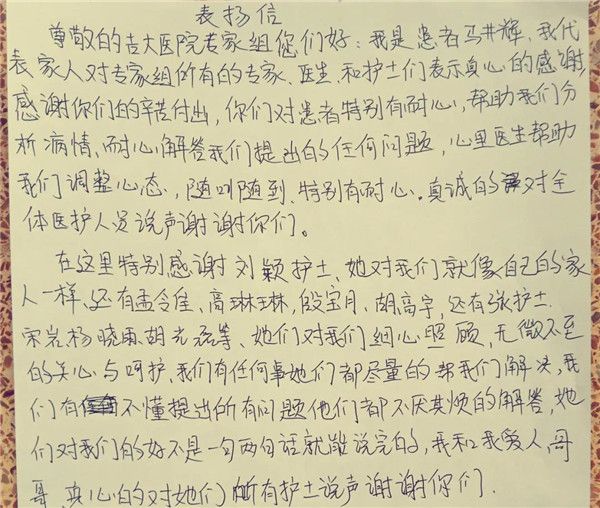 表扬信
尊敬的吉大医院专家组您们好：我是患者马井辉，我代
表家人对专家组所有的专家、医生、和护士们表示真心的感谢
感谢你们的辛苦付出，你们对患者特别有耐心，帮助我们分
析病情、耐心解答我们提出的任何问题，心里医生帮助
我们调整心态，随叫随到、特别有耐心。真诚的对全
体医护人员说声谢谢你们。
在这里特别感谢刘颖护士、她对我们就像自己的家
人一样、还有孟令佳、高琳琳，殷宝月、胡高宇，还有张护士.
宋岩杨晓雨、胡等、她们对我们细心照顾，无微不至
的关心与呵护、我们有任何事她们都尽量的帮我们解决，我
们有不懂提出所有问题他们都不厌其烦的解答，她
们对我们的好不是一句两句话就能说完的，我和我爱人，哥
哥，真心的对她们所有护士说声谢谢你们.